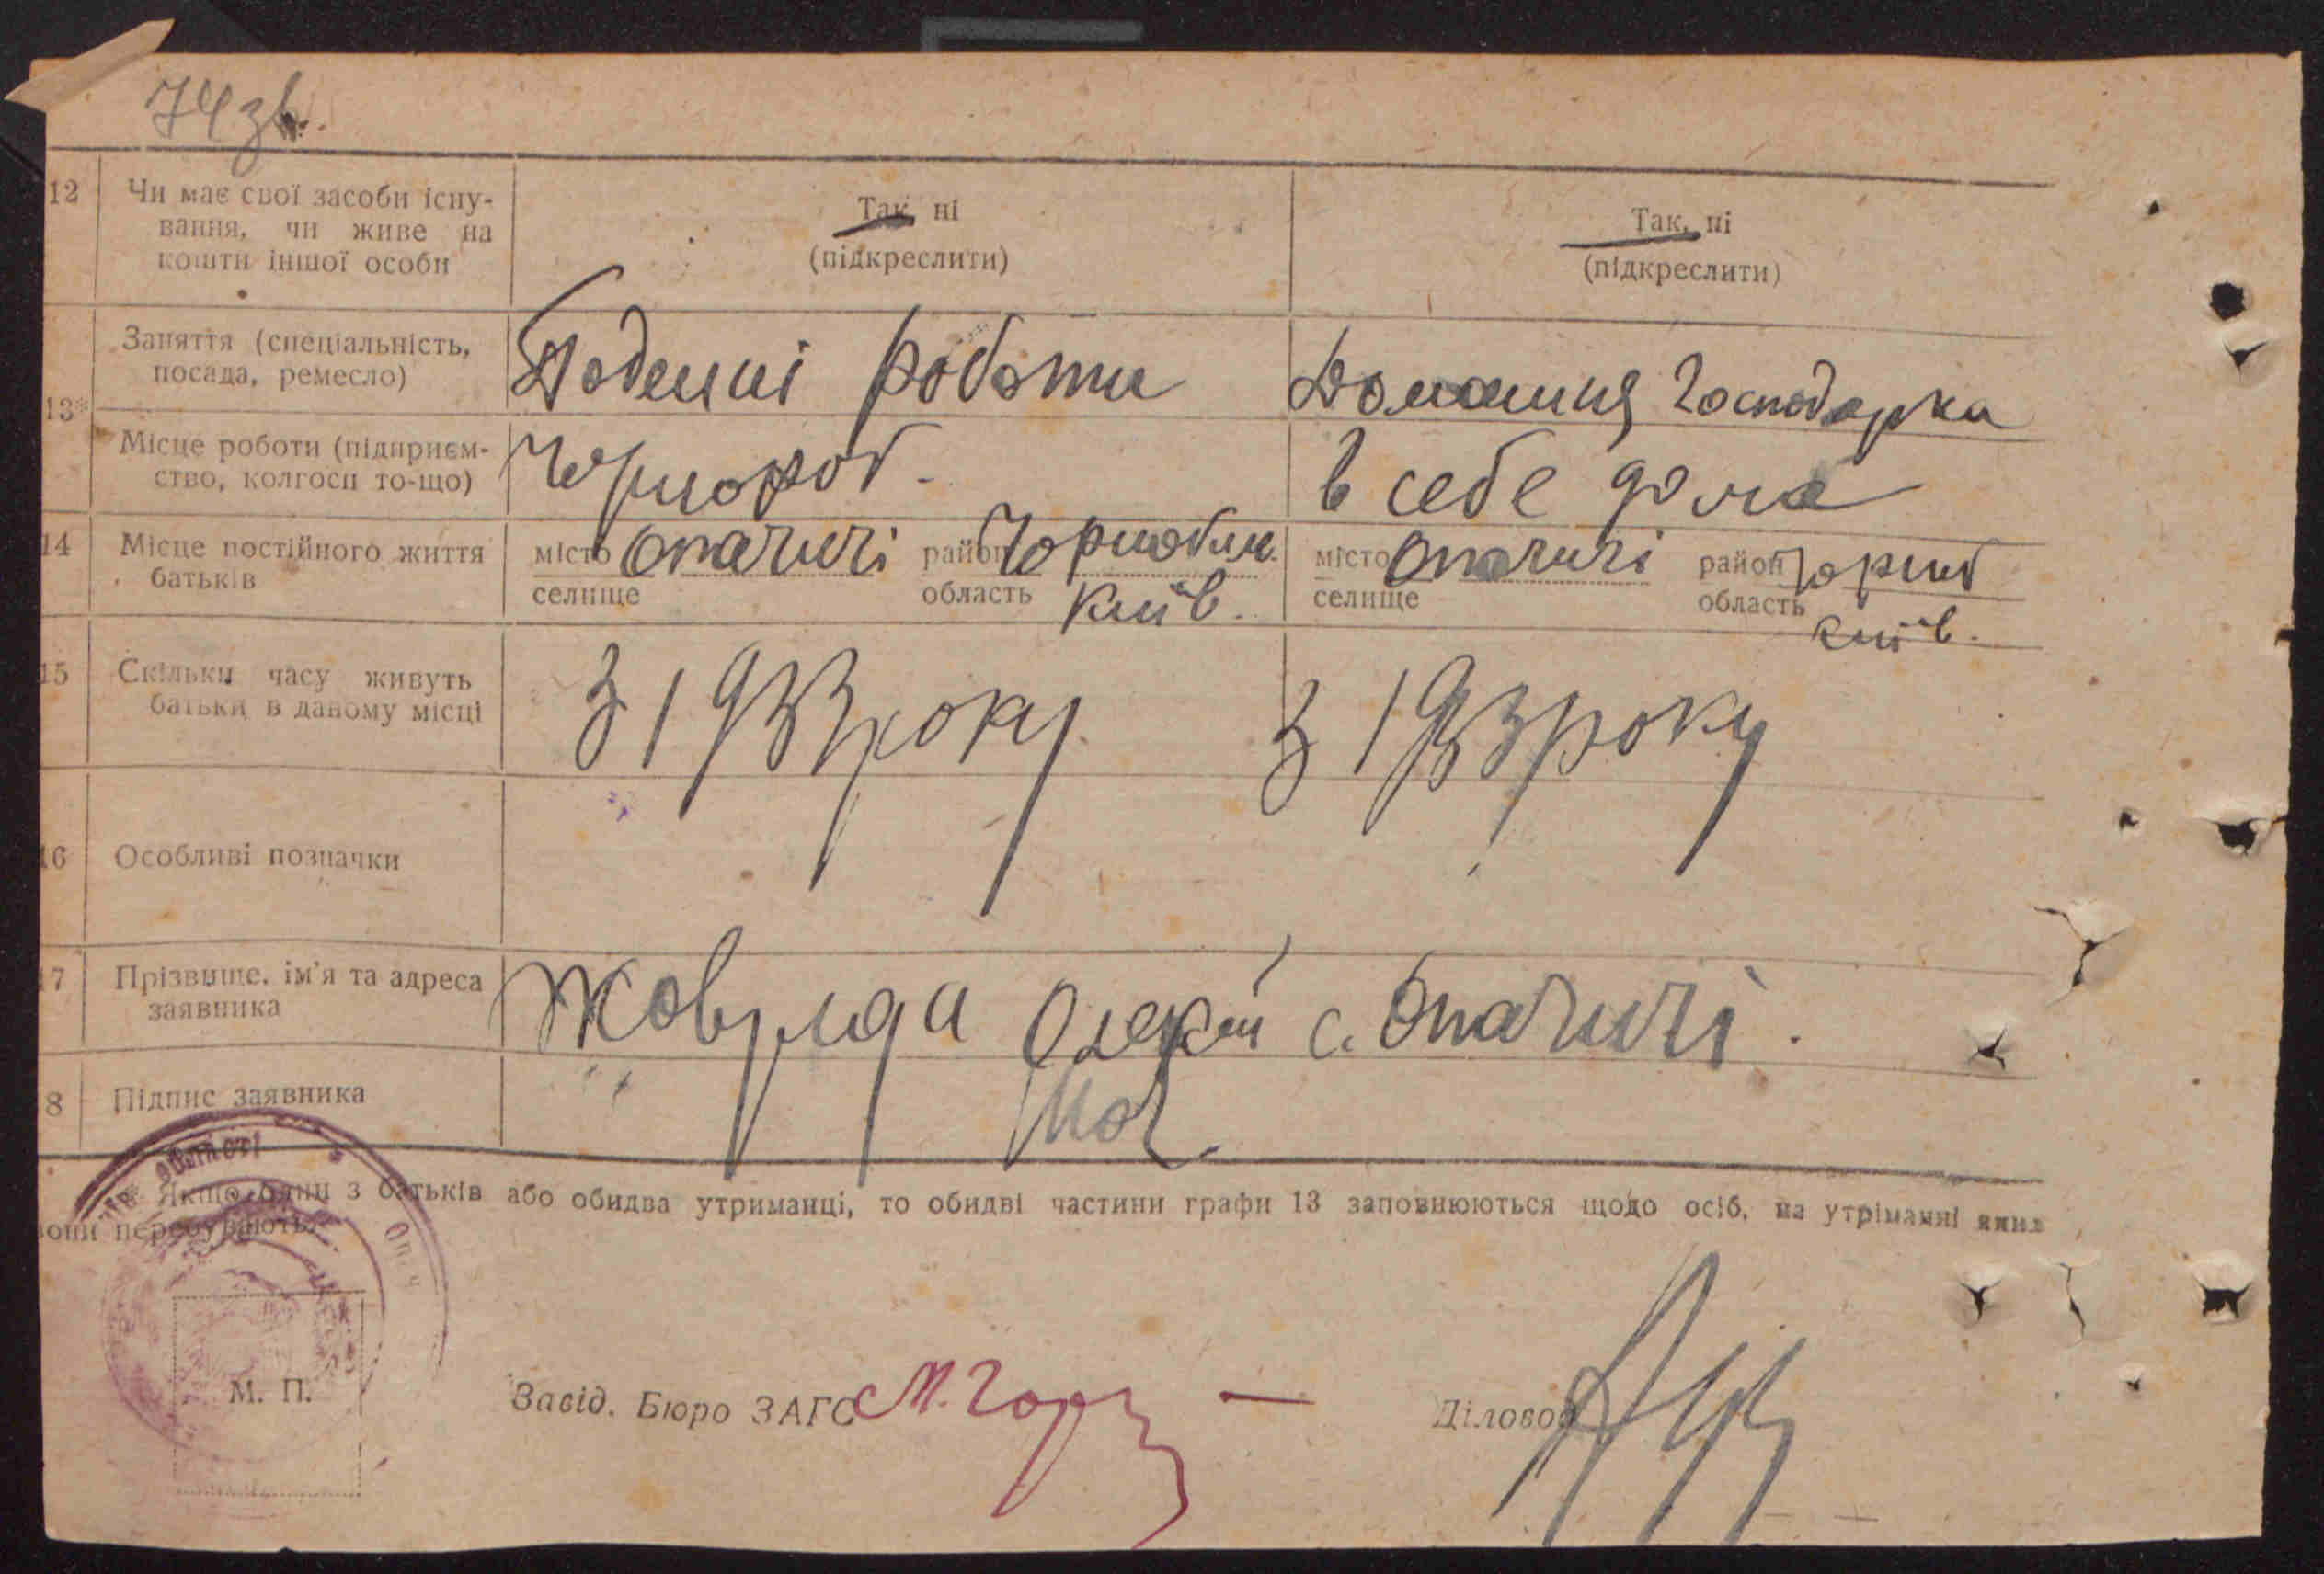 74 зв.
12 Чи має свої засоби існу-
вання, чи живе на
кошти іншої особи
Так, ні
(підкреслити)
Так, ні
(підкреслити)
13*
Заняття (спеціальність,
посада, ремесло)
Поденні роботи
Домашня Господарка
Місце роботи (підприєм-
ство, колгосп то-що)
Чорнороб.
в себе дома
14 Місце постійного життя
батьків
місто Опачичі район Чорнобил.
селище область Київ.
місто Опачичі район Чорноб
селище область Київ.
15 Скільки часу живуть
батьки в даному місці
З 1933 року
З 1933 року
16 Особливі позначки
17 Прізвище, ім'я та адреса
заявника
Олекій с. Опачичі.
8 Підпис заявника
* Якщо один з батьків або обидва утриманці, то обидві частини графи 13 заповнюються щодо осіб, на утріманні яких
вони перебувають.
М. П.
Завід. Бюро ЗАГС М. Гор
Діловод